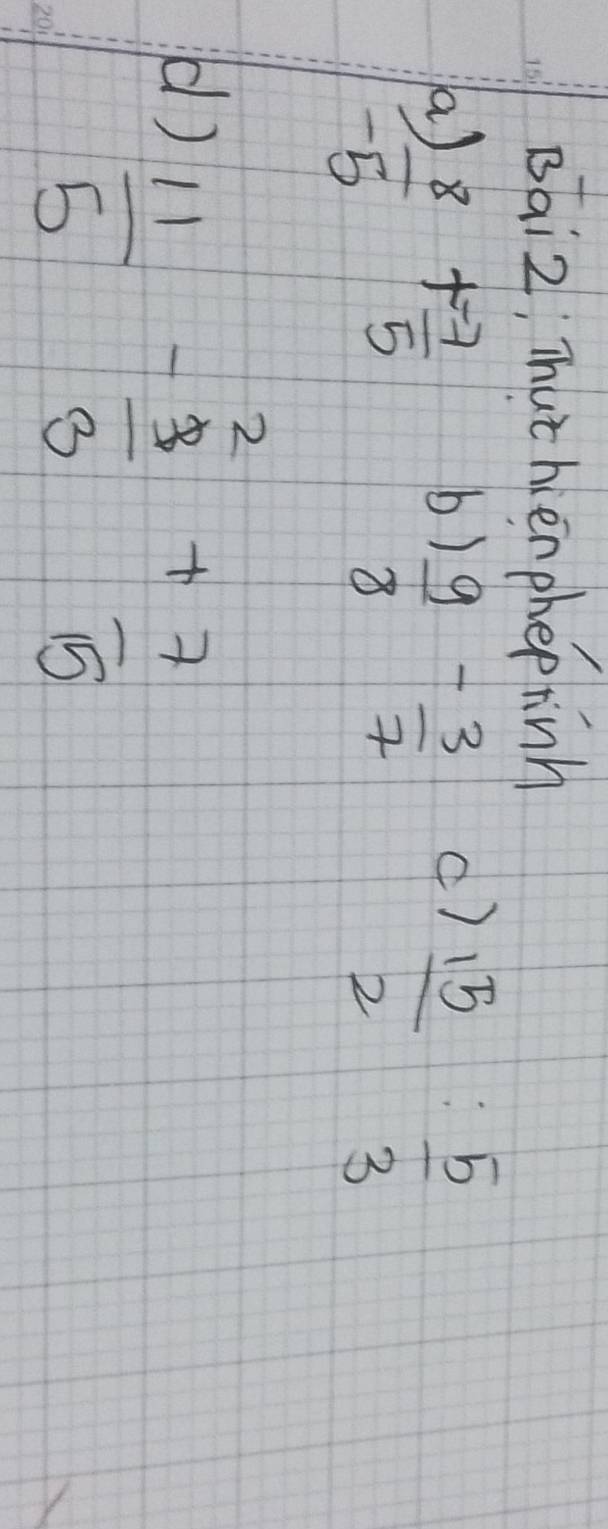 Bài 2: Thực hiện phép tính
a) 8/-5 + -7/5 b) 9/8 - 3/7 c) 15/2 : 5/3
d) 11/5 - 2/3 + 7/15